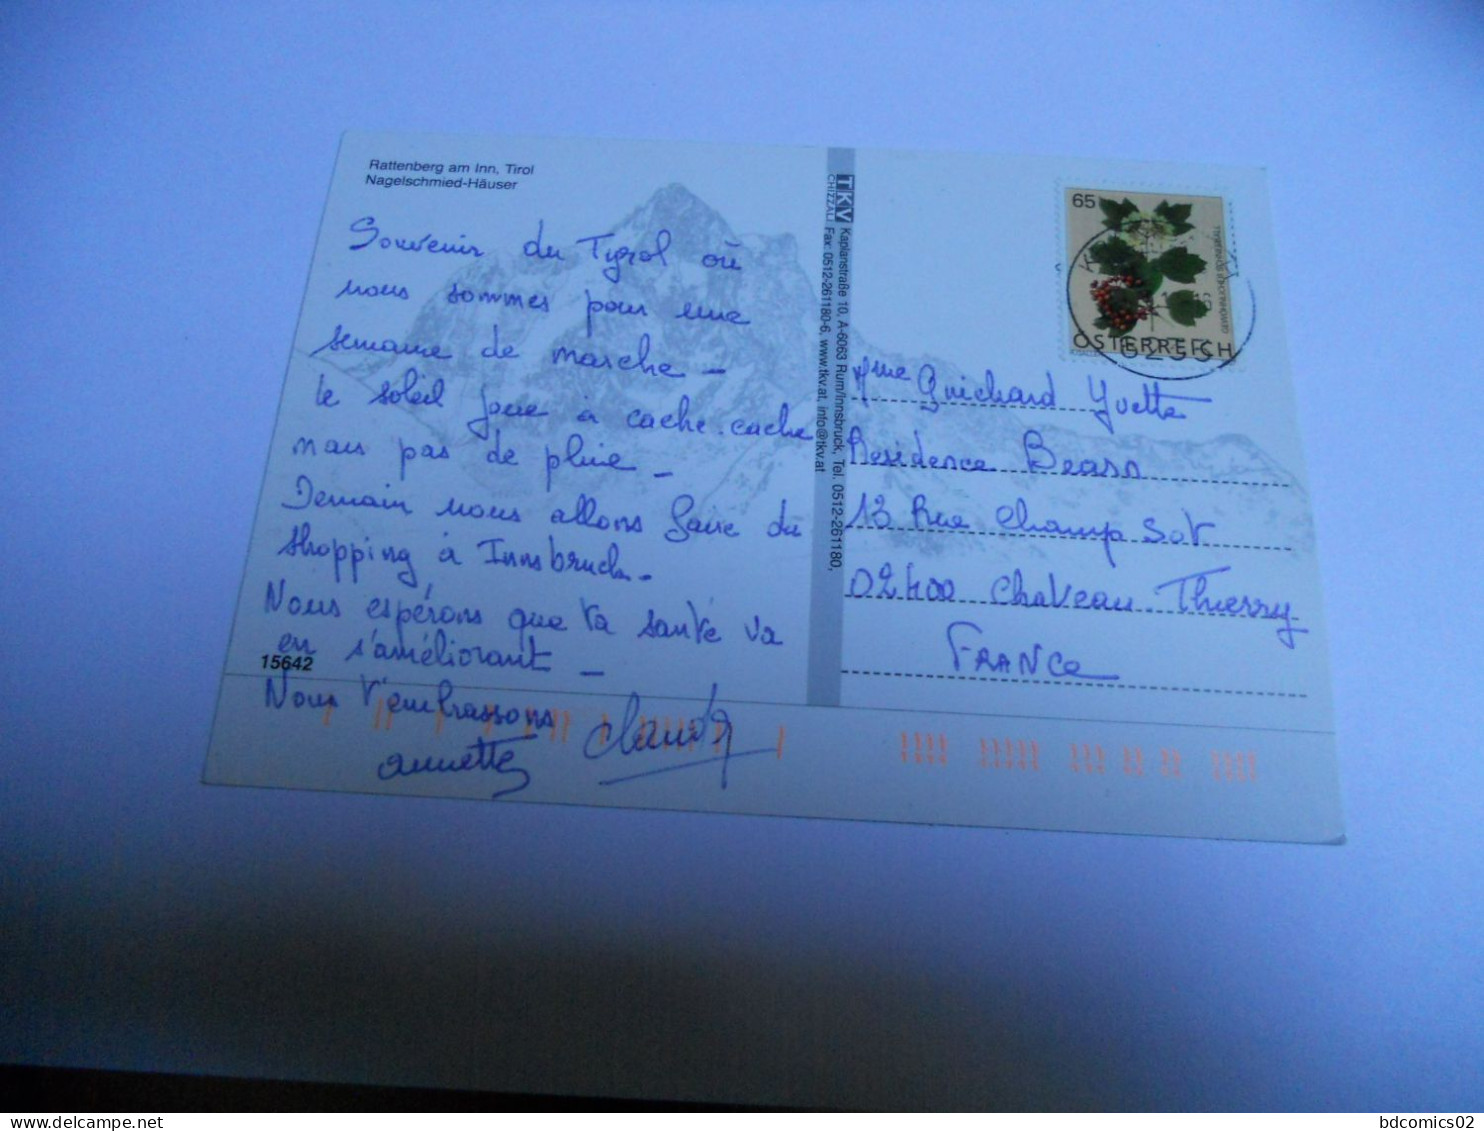 Rattenberg am Inn, Tirol
Nagelschmied-Häuser
Souvenir du Tyrol où
nous sommes pour une
semaine de marche -
le soleil joue à cache-cache
mais pas de pluie -
Demain nous allons faire du
shopping à Innsbruck -
Nous espérons que ta santé va
en s'améliorant -
15642
Nous t'embrassons
annette Claude
TKV
CHIZZALI
Kaplanstraße 10, A-6063 Rum/Innsbruck, Tel. 0512-261180,
Fax: 0512-261180-6, www.tkv.at, info@tkv.at
65
ÖSTERREICH
Mme Guichard Yvette
Residence Bearn
13 Rue Champ Sot
02400 Chateau Thierry
FRANCe
bdcomics02